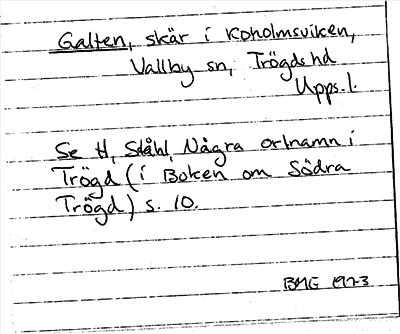 Galten, skär i Koholmsviken,
Vallby sn, Trögds hd
Upps. l.
Se H. Ståhl, Några ortnamn i
Trögd (i Boken om Södra
Trögd) s. 10.
BMG 1973